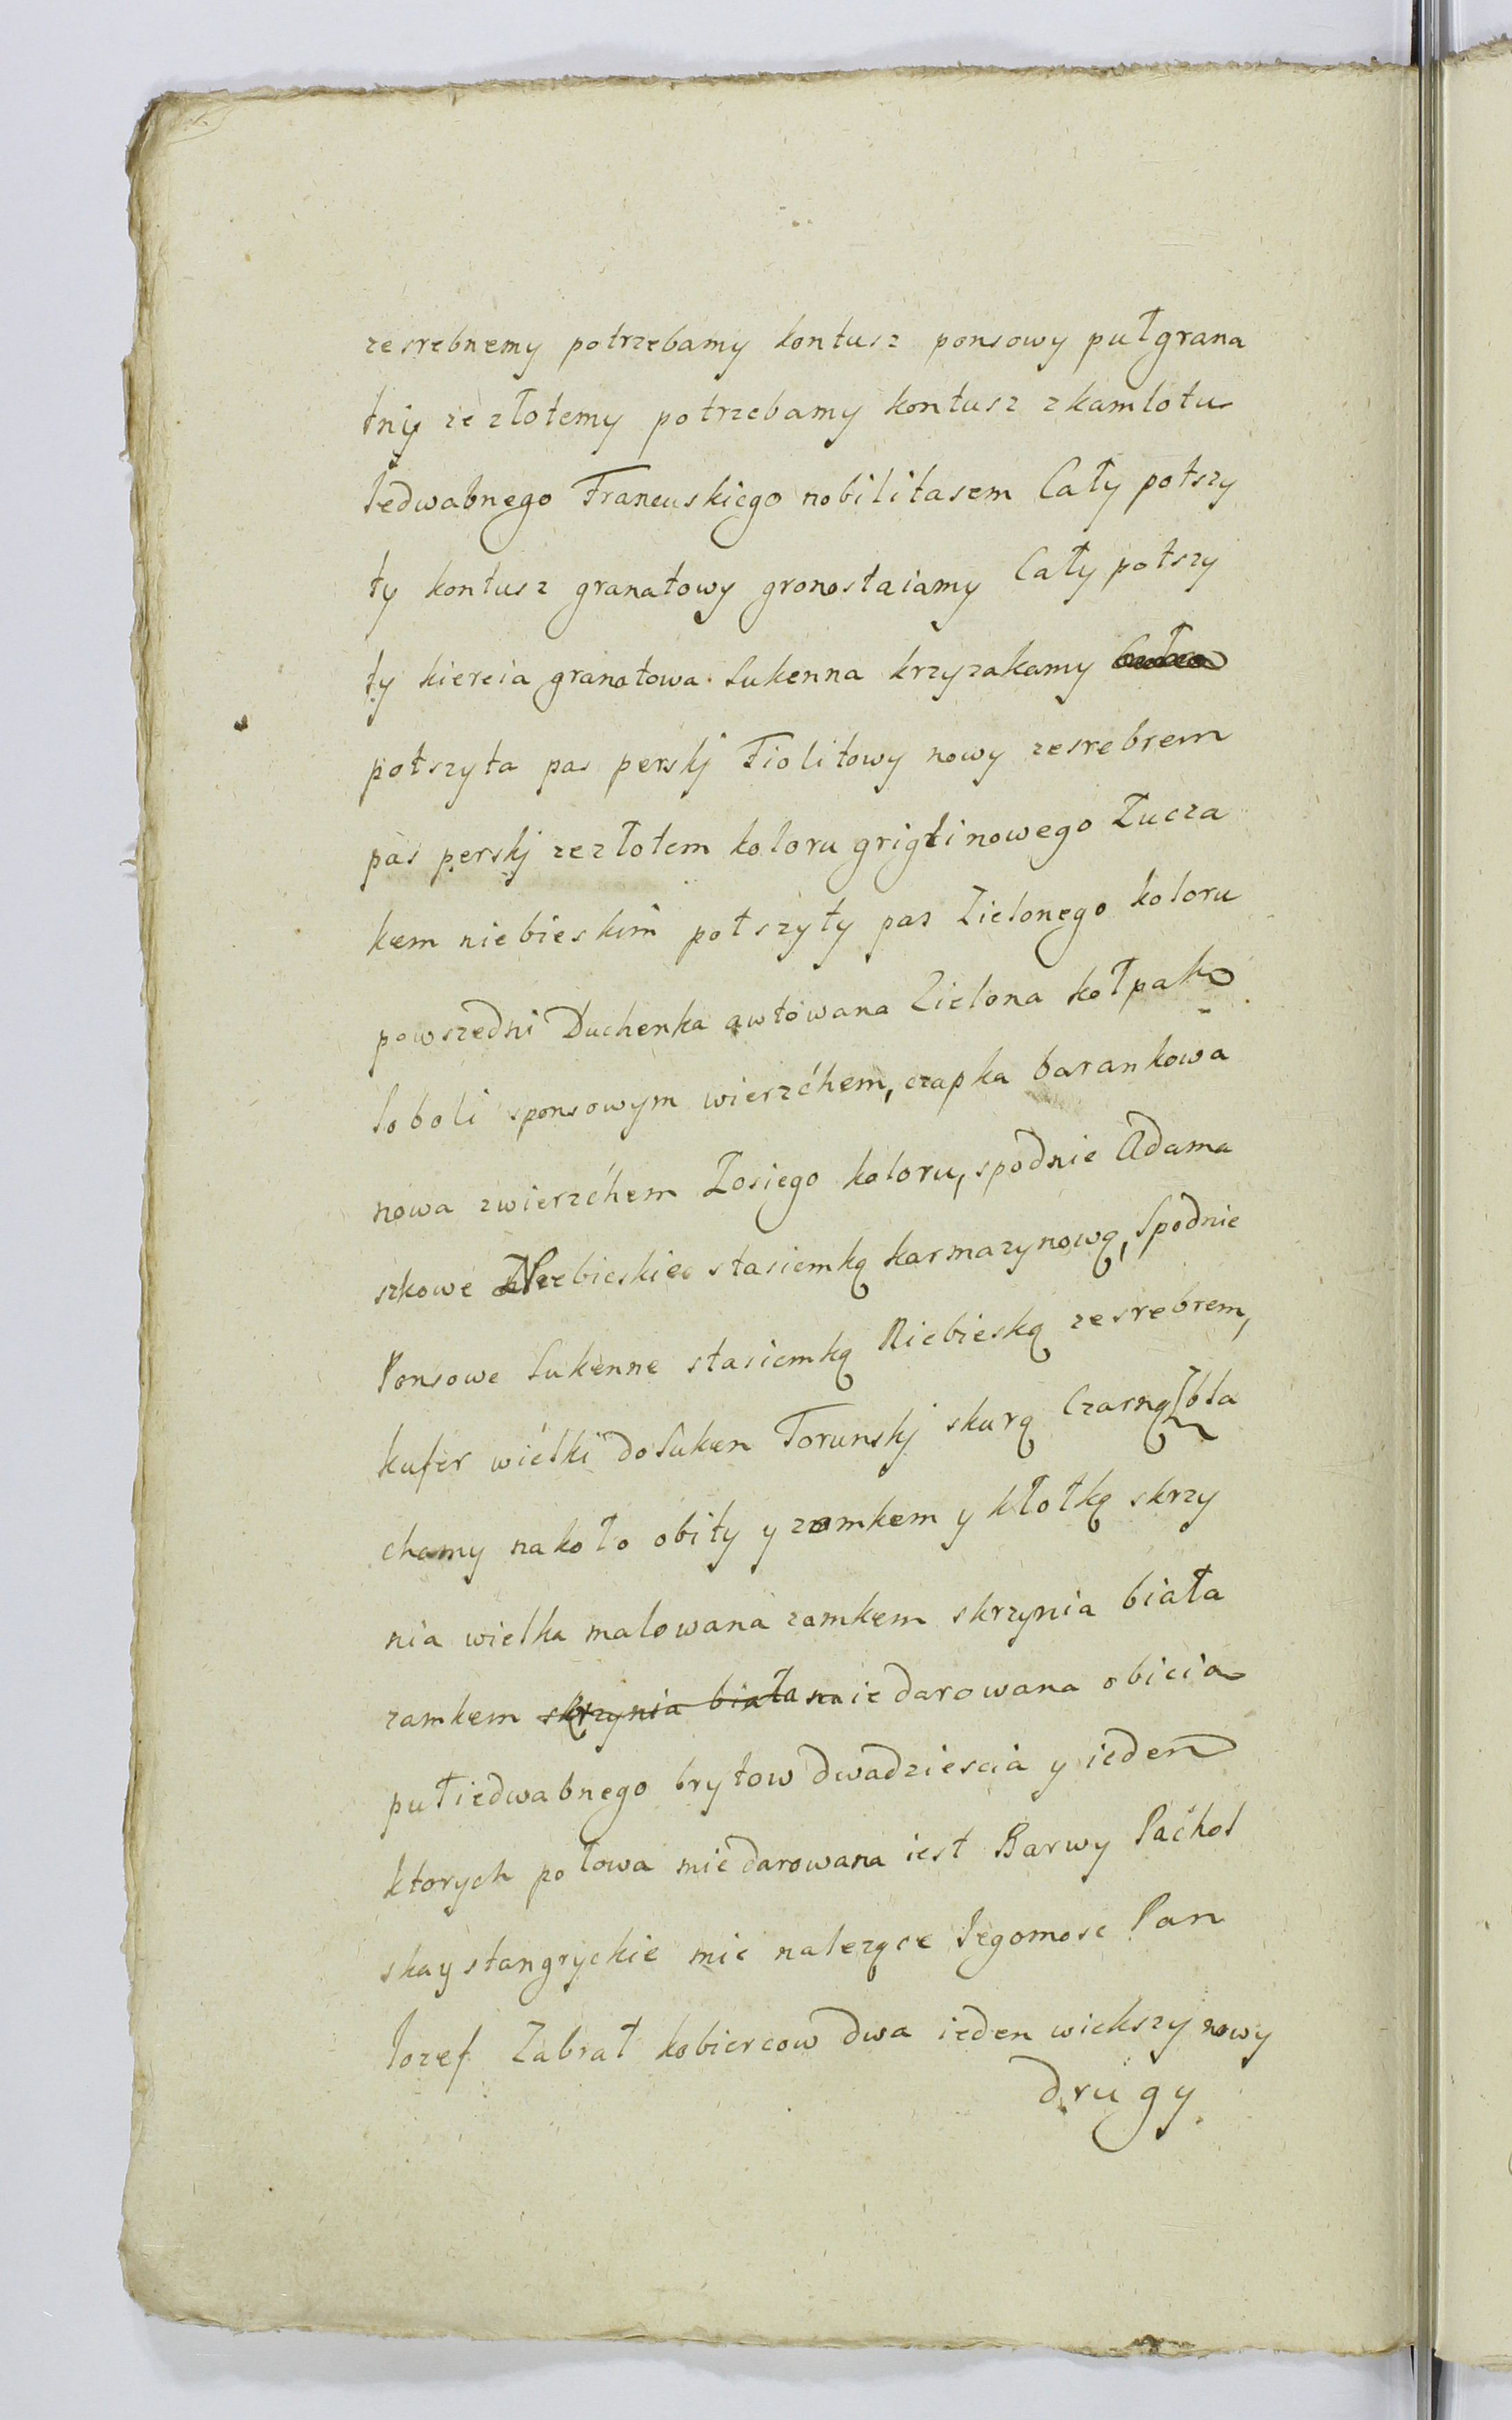 zesrebnemy potrzebamy kontusz ponsowy pułgrana
tnij ze złotemy potrzebamy kontusz zkamlotu
Jedwabnego Francuskiego nobilitasem Cały potszy
ty kontusz granatowy gronostaiamy Cały potszy
ty kiereia granatowa Sukenna krzyzakamy
potszyta pas perskj Fiolitowy nowy zesrebrem
pas perskj zezłotem koloru griglinowego Łucza
kem niebieskim potszyty pas Zielonego koloru
powszedni Duchenka awtowana Zielona kołpak
Soboli sponsowym wierzchem, czapka barankowa
nowa zwierzchem Łosiego koloru, spodnie Adama
szkowe Niebieskie stasiemką karmazynową, Spodnie
Ponsowe Sukenne stasiemką Niebieską zesrebrem,
kufer wielki doSuken Torunskj skurą Czarną bla
chamy nakoło obity y zamkem y kłotką skrzy
nia wielka malowana zamkem skrzynia biała
zamkem skrzynia biała naie darowana obicia
pułiedwabnego brytow dwadziescia y ieden
ktorych połowa mie darowana iest Barwy Pachol
skay stangryckie mie nalezące Jegomosc Pan
Jozef Zabrał kobiercow dwa ieden wiekszy nowy
drugy